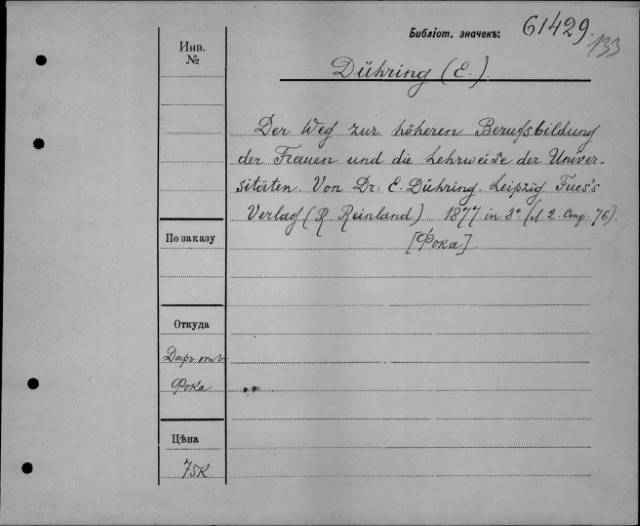 Библіот. значекъ: 61429.
133
Инв.
№
Dühring (E.).
Der Weg zur höheren Berufsbildung
der Frauen und die Lehrweise der Univer-
sitäten. Von Dr. E. Dühring. Leipzig, Fues's
Verlag (R Reinland) 1877 in 8º. (Стр. 76).
[Фока].
По заказу
Откуда
Даръ отъ
Фока
Цѣна
75к